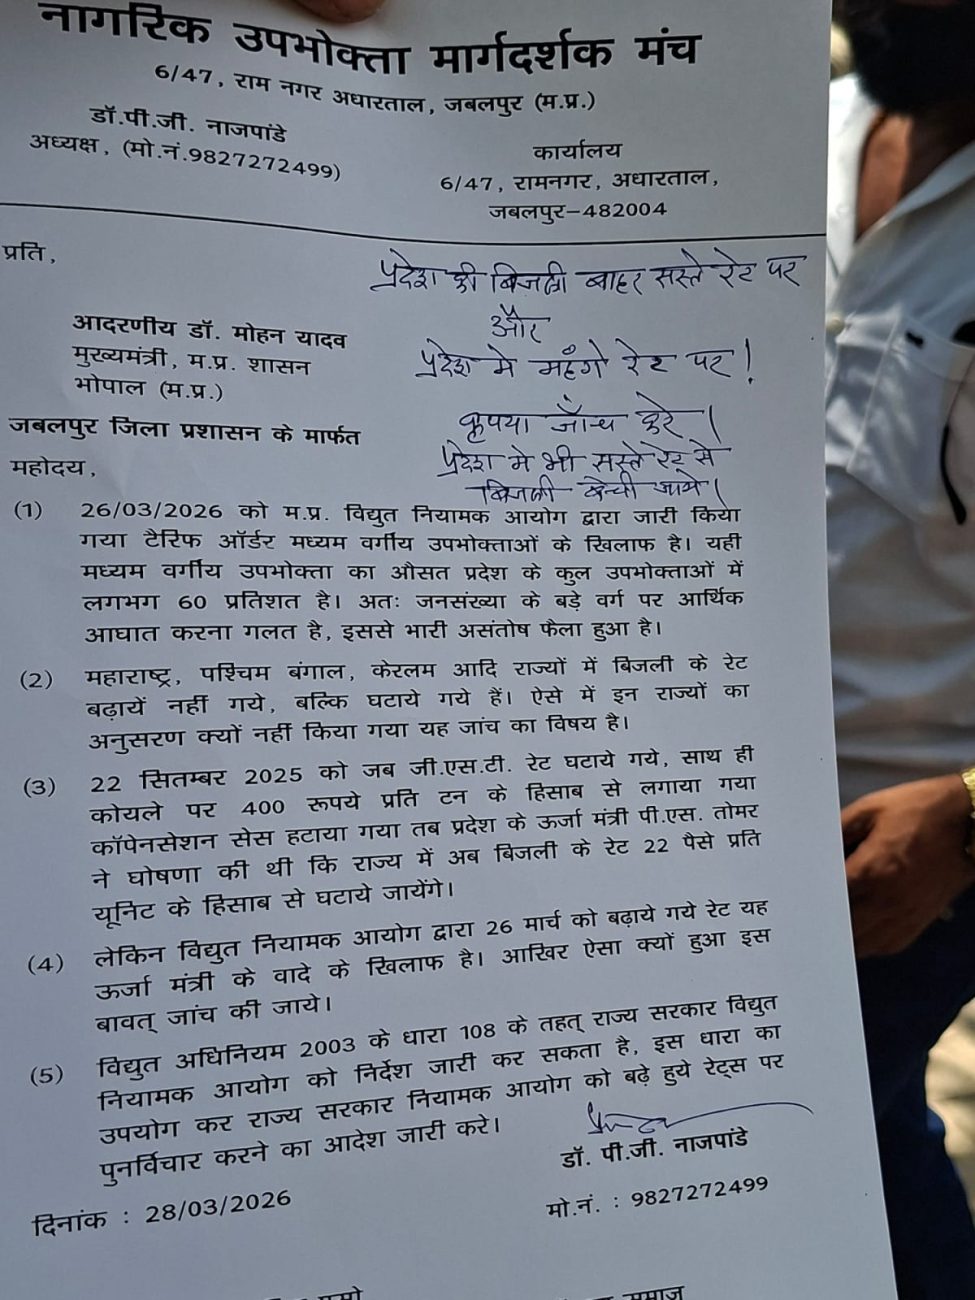 नागरिक उपभोक्ता मार्गदर्शक मंच
6/47, राम नगर अधारताल, जबलपुर (म.प्र.)
डॉ.पी.जी. नाजपांडे
अध्यक्ष, (मो.नं.9827272499)
कार्यालय
6/47, रामनगर, अधारताल,
जबलपुर–482004
प्रति,
प्रदेश की बिजली बाहर सस्ते रेट पर
और
प्रदेश मे महंगे रेट पर!
कृपया जाँच करे।
प्रदेश मे भी सस्ते रेट से
बिजली बेची जाये।
आदरणीय डॉ. मोहन यादव
मुख्यमंत्री, म.प्र. शासन
भोपाल (म.प्र.)
जबलपुर जिला प्रशासन के मार्फत
महोदय,
(1) 26/03/2026 को म.प्र. विद्युत नियामक आयोग द्वारा जारी किया
गया टैरिफ ऑर्डर मध्यम वर्गीय उपभोक्ताओं के खिलाफ है। यही
मध्यम वर्गीय उपभोक्ता का औसत प्रदेश के कुल उपभोक्ताओं में
लगभग 60 प्रतिशत है। अतः जनसंख्या के बड़े वर्ग पर आर्थिक
आघात करना गलत है, इससे भारी असंतोष फैला हुआ है।
(2) महाराष्ट्र, पश्चिम बंगाल, केरलम आदि राज्यों में बिजली के रेट
बढ़ायें नहीं गये, बल्कि घटाये गये हैं। ऐसे में इन राज्यों का
अनुसरण क्यों नहीं किया गया यह जांच का विषय है।
(3) 22 सितम्बर 2025 को जब जी.एस.टी. रेट घटाये गये, साथ ही
कोयले पर 400 रूपये प्रति टन के हिसाब से लगाया गया
कॉपेनसेशन सेस हटाया गया तब प्रदेश के ऊर्जा मंत्री पी.एस. तोमर
ने घोषणा की थी कि राज्य में अब बिजली के रेट 22 पैसे प्रति
यूनिट के हिसाब से घटाये जायेंगे।
(4) लेकिन विद्युत नियामक आयोग द्वारा 26 मार्च को बढ़ाये गये रेट यह
ऊर्जा मंत्री के वादे के खिलाफ है। आखिर ऐसा क्यों हुआ इस
बावत् जांच की जाये।
(5) विद्युत अधिनियम 2003 के धारा 108 के तहत् राज्य सरकार विद्युत
नियामक आयोग को निर्देश जारी कर सकता है, इस धारा का
उपयोग कर राज्य सरकार नियामक आयोग को बढ़े हुये रेट्स पर
पुनर्विचार करने का आदेश जारी करे।
डॉ. पी.जी. नाजपांडे
मो.नं. : 9827272499
दिनांक : 28/03/2026